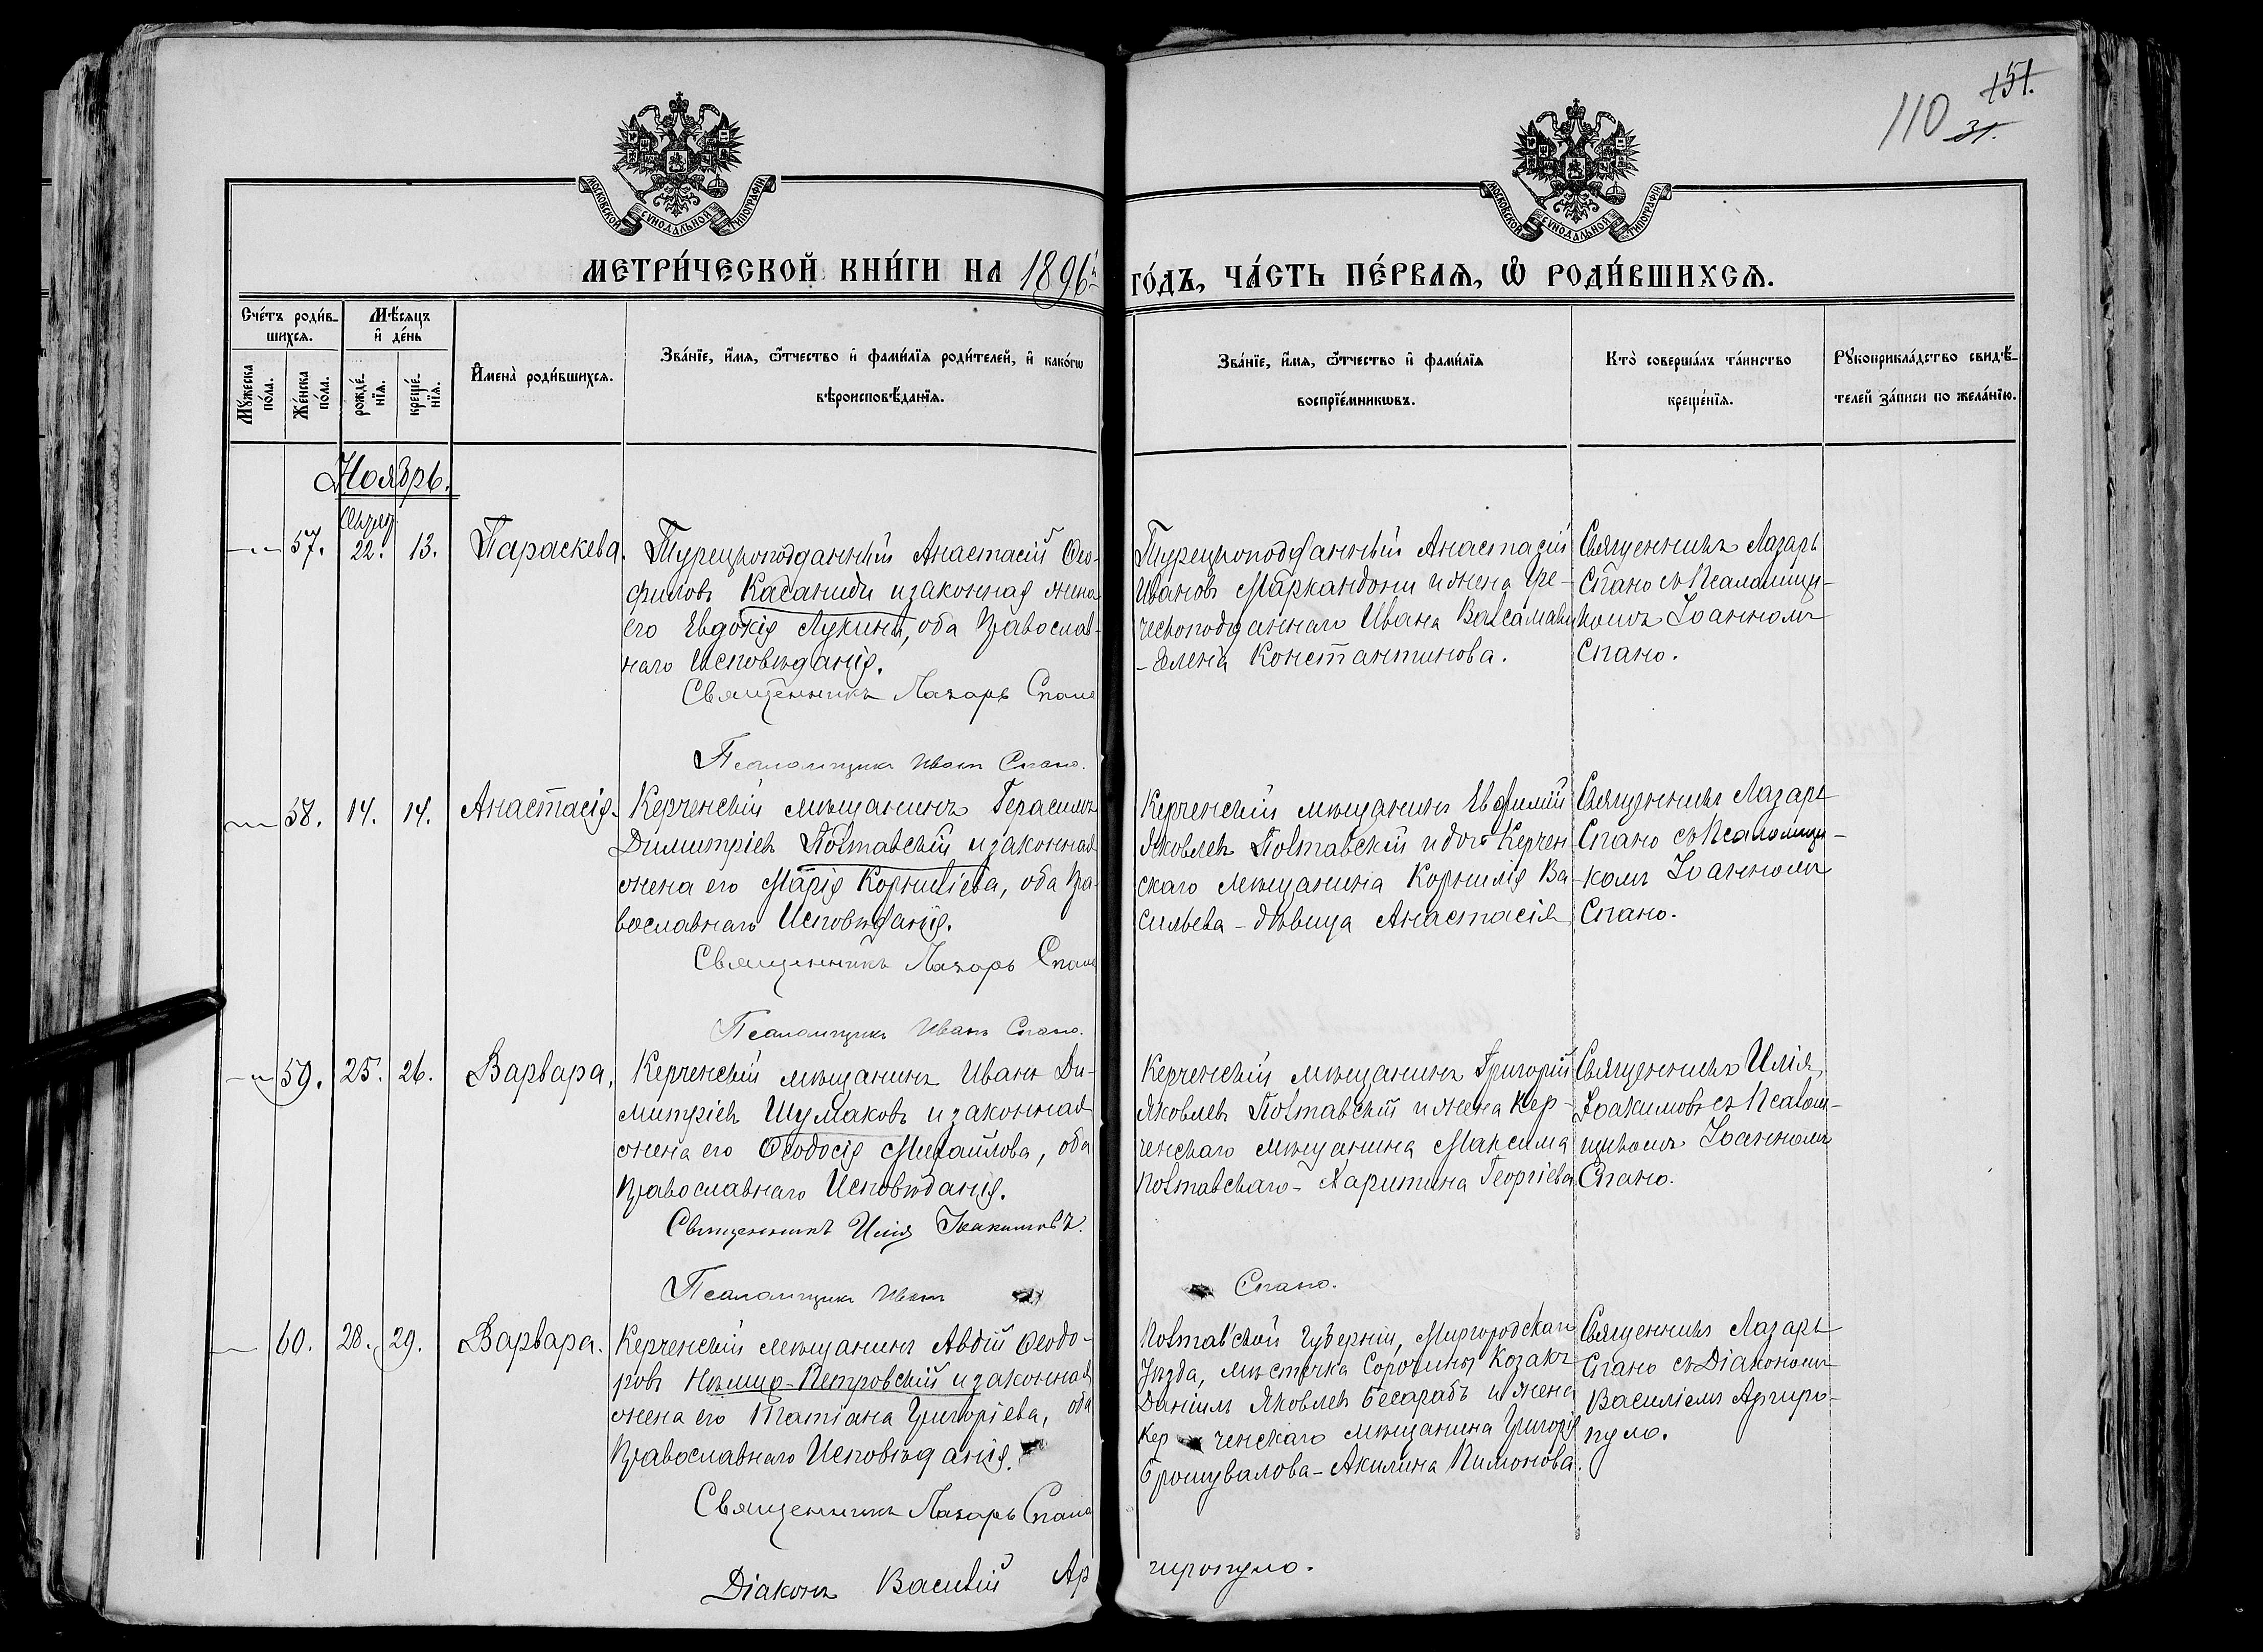 151.
110 31.
МОСКОВСКОЙ СѴНОДАЛЬНОЙ ТИПОГРАФІИ
МОСКОВСКОЙ СѴНОДАЛЬНОЙ ТИПОГРАФІИ
МЕТРИ́ЧЕСКОЙ КНИ́ГИ НА 1896й
ГО́ДЪ, ЧА́СТЬ ПЕ́РВАѦ, Ѽ РОДИ́ВШИХСѦ.
Сче́тъ роди́в-
шихсѧ.
Мѣ́сѧцъ
и҆ де́нь
Мꙋ́жеска
по́ла.
Же́нска
по́ла.
рожде́-
нїѧ.
креще́-
нїѧ.
И҆мена̀ роди́вшихсѧ.
Зва́нїе, и҆́мѧ, ѻ҆́тчество и҆ фами́лїѧ роди́телей, и҆ како́гѡ
вѣроисповѣ́данїѧ.
Зва́нїе, и҆́мѧ, ѻ҆́тчество и҆ фами́лїѧ
воспрїе́мникѡвъ.
Кто̀ соверша́лъ та́инство
креще́нїѧ.
Рꙋкоприкла́дство свидѣ́-
телей за́писи по жела́нїю.
Ноябрь.
57. 22. 13. Параскева. Турецкоподданный Анастасій Ѳео-
филовъ Касаниди и законная жена
его Евдокія Лукина, оба Православ-
наго Исповѣданія.
Священникъ Лазарь Спано
Псаломщикъ Иванъ Спано.
Турецкоподданный Анастасій
Ивановъ Маркандони и жена гре-
ческоподданнаго Ивана Валсамаки
- Елена Константинова.
Священникъ Лазарь
Спано съ Псаломщи-
комъ Іоанномъ
Спано.
58. 14. 14. Анастасія. Керченскій мѣщанинъ Герасимъ
Димитріевъ Полтавскій и законная
жена его Марія Корниліева, оба Пра-
вославнаго Исповѣданія.
Священникъ Лазарь Спано
Псаломщикъ Иванъ Спано.
Керченскій мѣщанинъ Евфимій
Яковлевъ Полтавскій и дочь Керчен
скаго мѣщанина Корнилія Ва-
сильева - дѣвица Анастасія
Священникъ Лазарь
Спано съ Псаломщи-
комъ Іоанномъ
Спано.
59. 25. 26. Варвара. Керченскій мѣщанинъ Иванъ Ди-
митріевъ Шумаковъ и законная
жена его Ѳеодосія Михайлова, оба
Православнаго Исповѣданія.
Священникъ Илія Іоакимовъ.
Псаломщикъ Иванъ
Спано.
Керченскій мѣщанинъ Григорій
Яковлевъ Полтавскій и жена Кер-
ченскаго мѣщанина Максима
Полтавскаго - Харитина Георгіева
Священникъ Илія
Іоакимовъ съ Псалом-
щикомъ Іоанномъ
Спано.
60. 28. 29. Варвара. Керченскій мѣщанинъ Авдій Ѳеодо-
ровъ Петровскій и законная
жена его Татіана Григоріева, оба
Православнаго Исповѣданія.
Священникъ Лазарь Спано
Діаконъ Василій Ар
гиропуло.
Полтавской губерніи, Миргородскаго
Уѣзда, мѣстечка Сорочины Козакъ
Даніилъ Яковлевъ Бесарабъ и жена
Кер ченскаго мѣщанина Григорія
Брошувалова - Акилина Пимонова.
Священникъ Лазарь
Спано съ Діакономъ
Василіемъ Аргиро-
пуло.